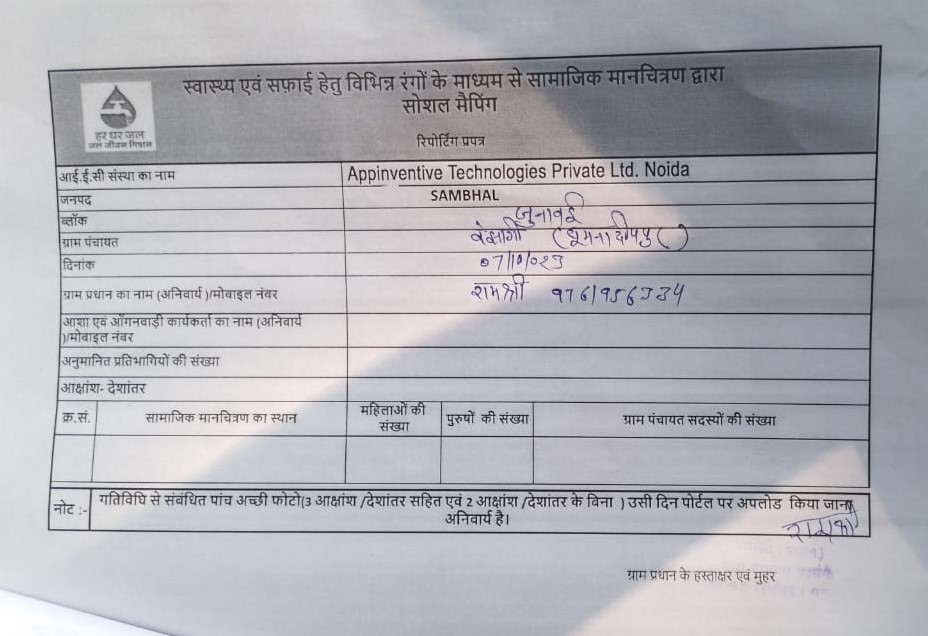 स्वास्थ्य एवं सफ़ाई हेतु विभिन्न रंगों के माध्यम से सामाजिक मानचित्रण द्वारा
सोशल मैपिंग
हर घर जल
जल जीवन मिशन
रिपोर्टिंग प्रपत्र
आई.ई.सी संस्था का नाम Appinventive Technologies Private Ltd. Noida
जनपद SAMBHAL
ब्लॉक जुनावई
ग्राम पंचायत
दिनांक 07/10/023
ग्राम प्रधान का नाम (अनिवार्य )/मोबाइल नंबर रामश्री
आशा एवं आँगनवाड़ी कार्यकर्ता का नाम (अनिवार्य
)/मोबाइल नंबर
अनुमानित प्रतिभागियों की संख्या
आक्षांश- देशांतर
क्र.सं. सामाजिक मानचित्रण का स्थान महिलाओं की संख्या पुरुषों की संख्या ग्राम पंचायत सदस्यों की संख्या
नोट :- गतिविधि से संबंधित पांच अच्छी फोटो(3 आक्षांश /देशांतर सहित एवं 2 आक्षांश /देशांतर के बिना ) उसी दिन पोर्टल पर अपलोड किया जाना
अनिवार्य है।
ग्राम प्रधान के हस्ताक्षर एवं मुहर